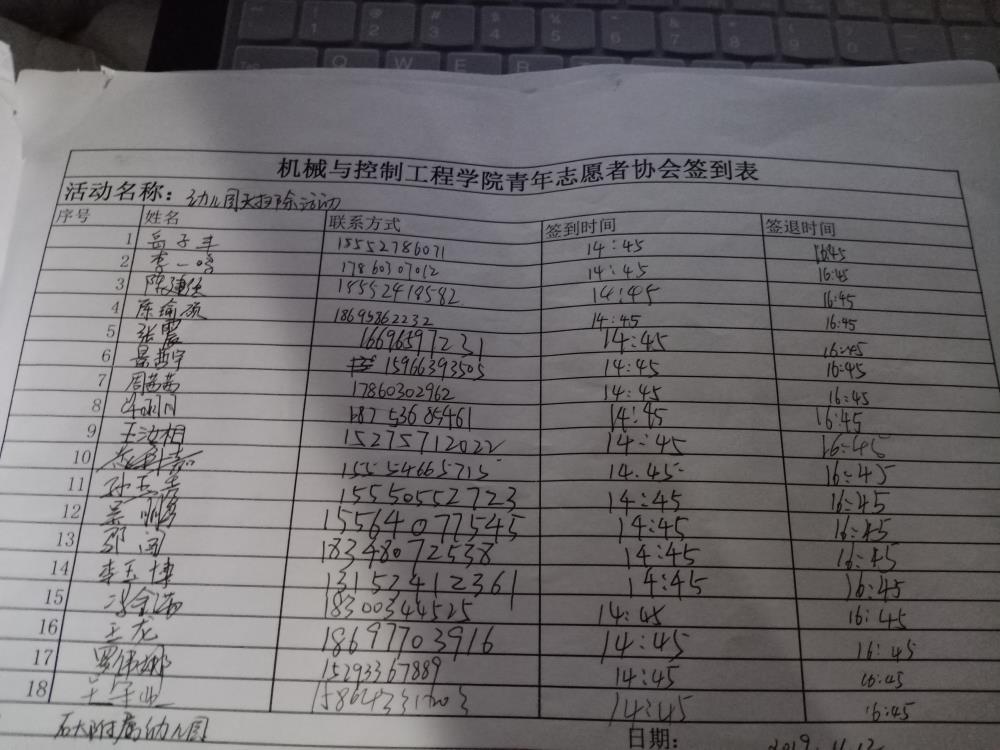 机械与控制工程学院青年志愿者协会签到表
活动名称：幼儿园大扫除活动
序号 姓名 联系方式 签到时间 签退时间
1 岳子丰 15552786071 14:45 16:45
2 李一鸣 17860307012 14:45 16:45
3 陈建 18552418582 14:45 16:45
4 陈瑜硕 18695862232 14:45 16:45
5 张震 16696597231 14:45 16:45
6 景哲宇 15966393505 14:45 16:45
7 周茜茜 17860302962 14:45 16:45
8 18753685461 14:45 16:45
9 王汝相 15275712022 14:45 16:45
10 15554665715 14:45 16:45
11 孙玉 15550552723 14:45 16:45
12 15564077545 14:45 16:45
13 闯 18348072538 14:45 16:45
14 李玉博 13152412361 14:45 16:45
15 冯金海 18300344525 14:45 16:45
16 王龙 18697703916 14:45 16:45
17 罗伟娜 15293367889 14:45 16:45
18 14:45 16:45
石大附属幼儿园 日期：